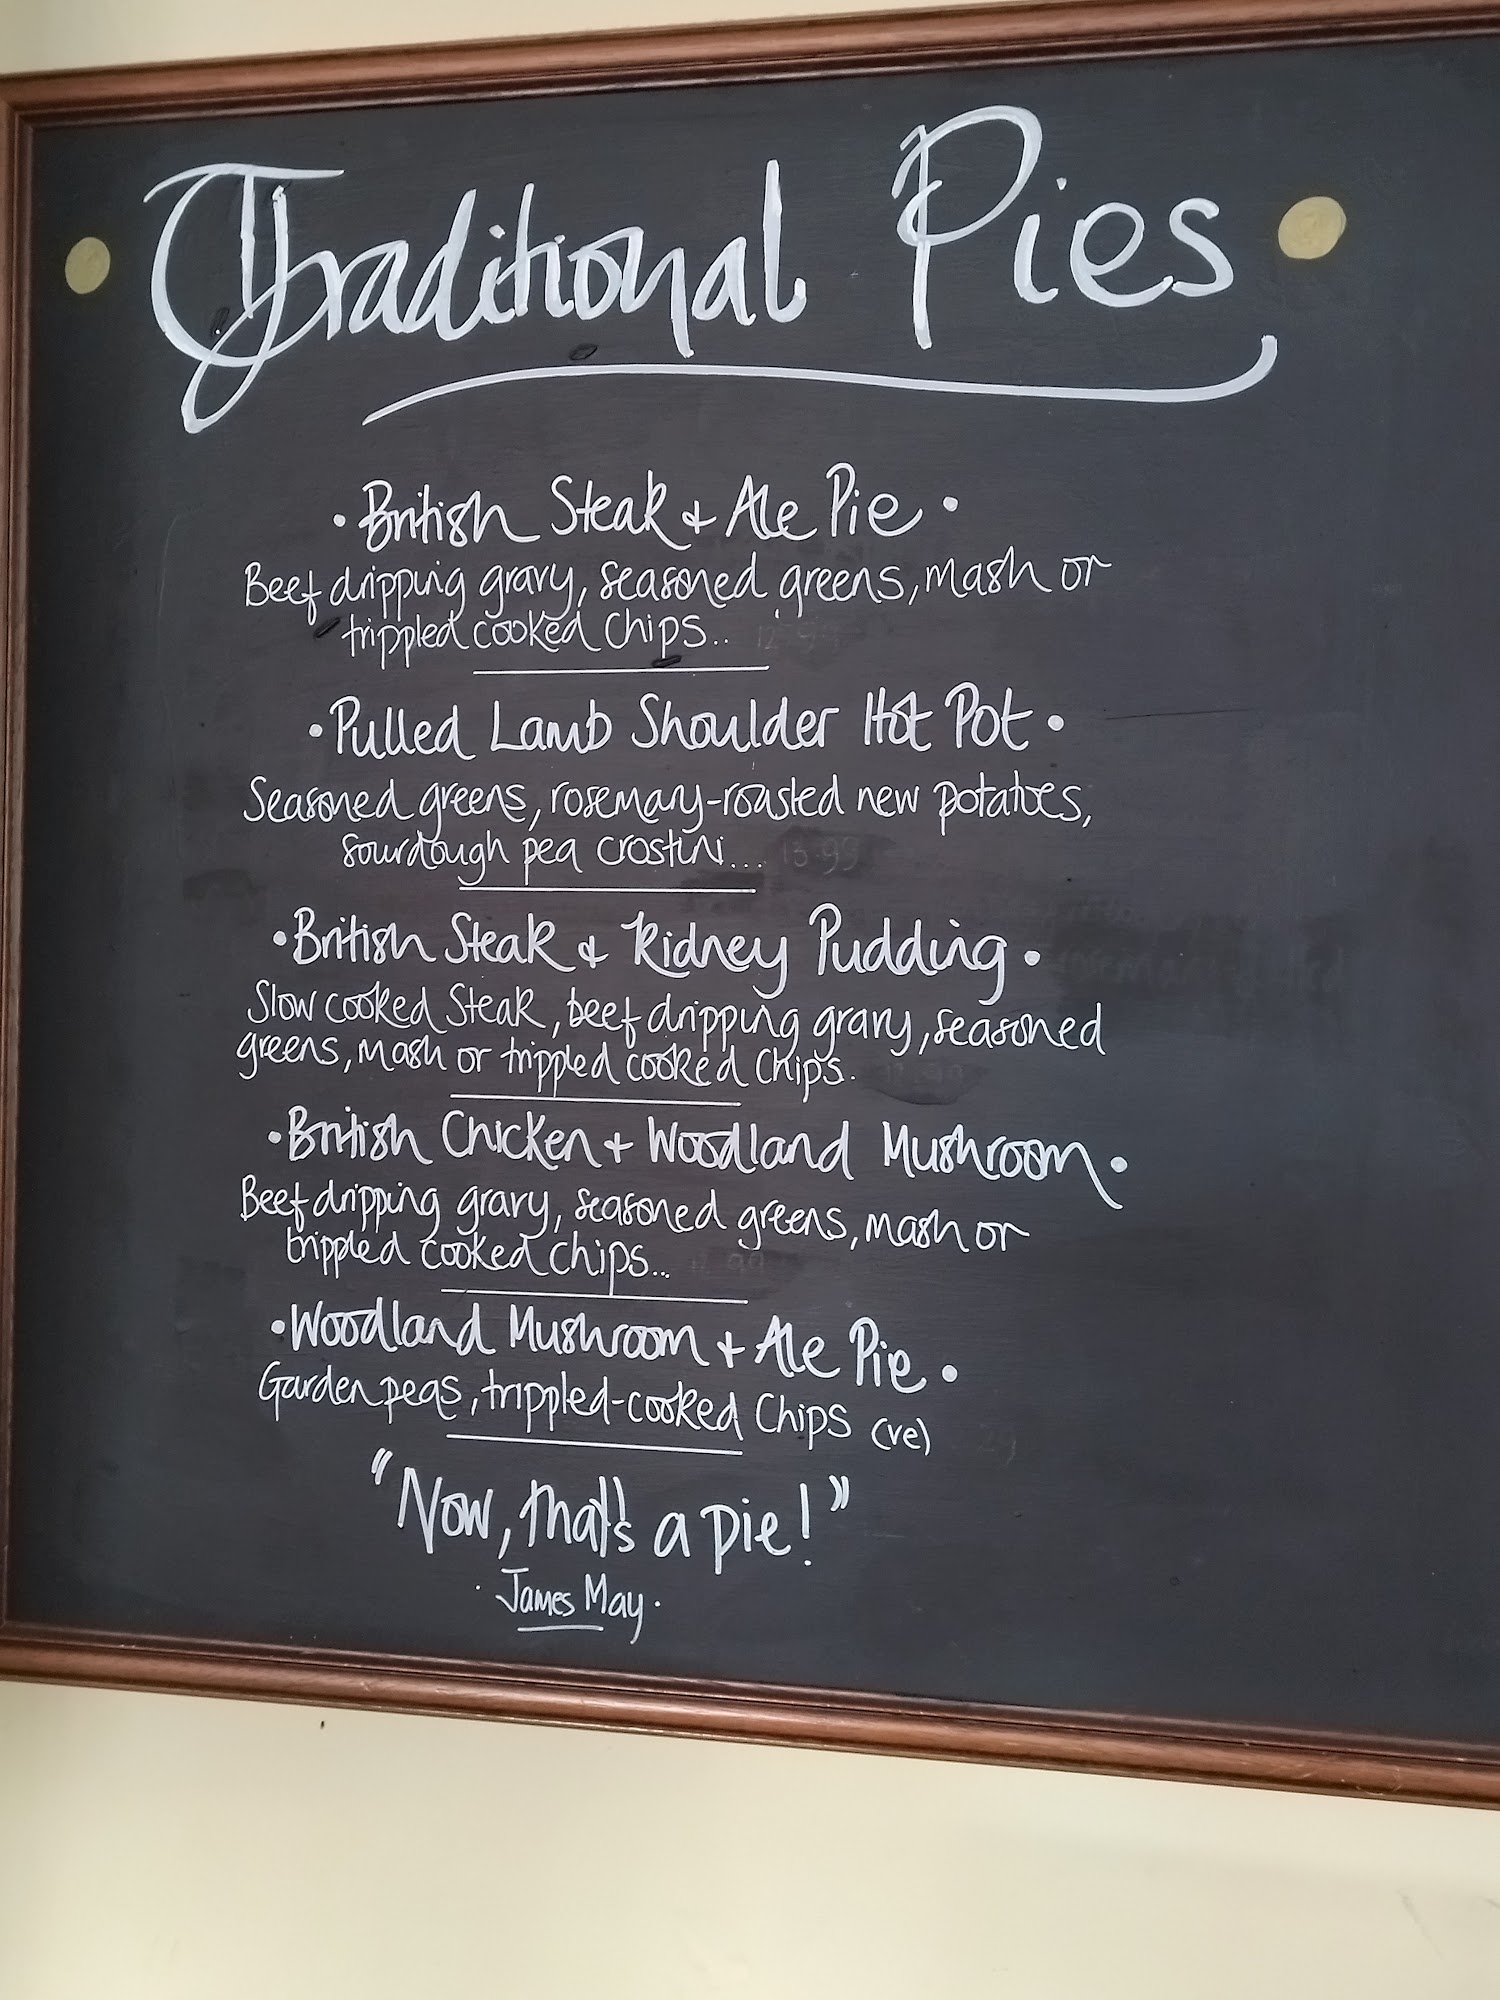 Traditional Pies
• British Steak + Ale Pie •
Beef dripping gravy, seasoned greens, mash or
trippled cooked chips..
• Pulled Lamb Shoulder Hot Pot •
Seasoned greens, rosemary-roasted new potatoes,
sourdough pea crostini... 13.99
• British Steak & Kidney Pudding •
Slow cooked Steak, beef dripping gravy, seasoned
greens, mash or trippled cooked chips.
• British Chicken + Woodland Mushroom •
Beef dripping gravy, seasoned greens, mash or
trippled cooked chips...
• Woodland Mushroom + Ale Pie •
Garden peas, trippled-cooked chips (ve)
"Now, that's a pie!"
· James May ·